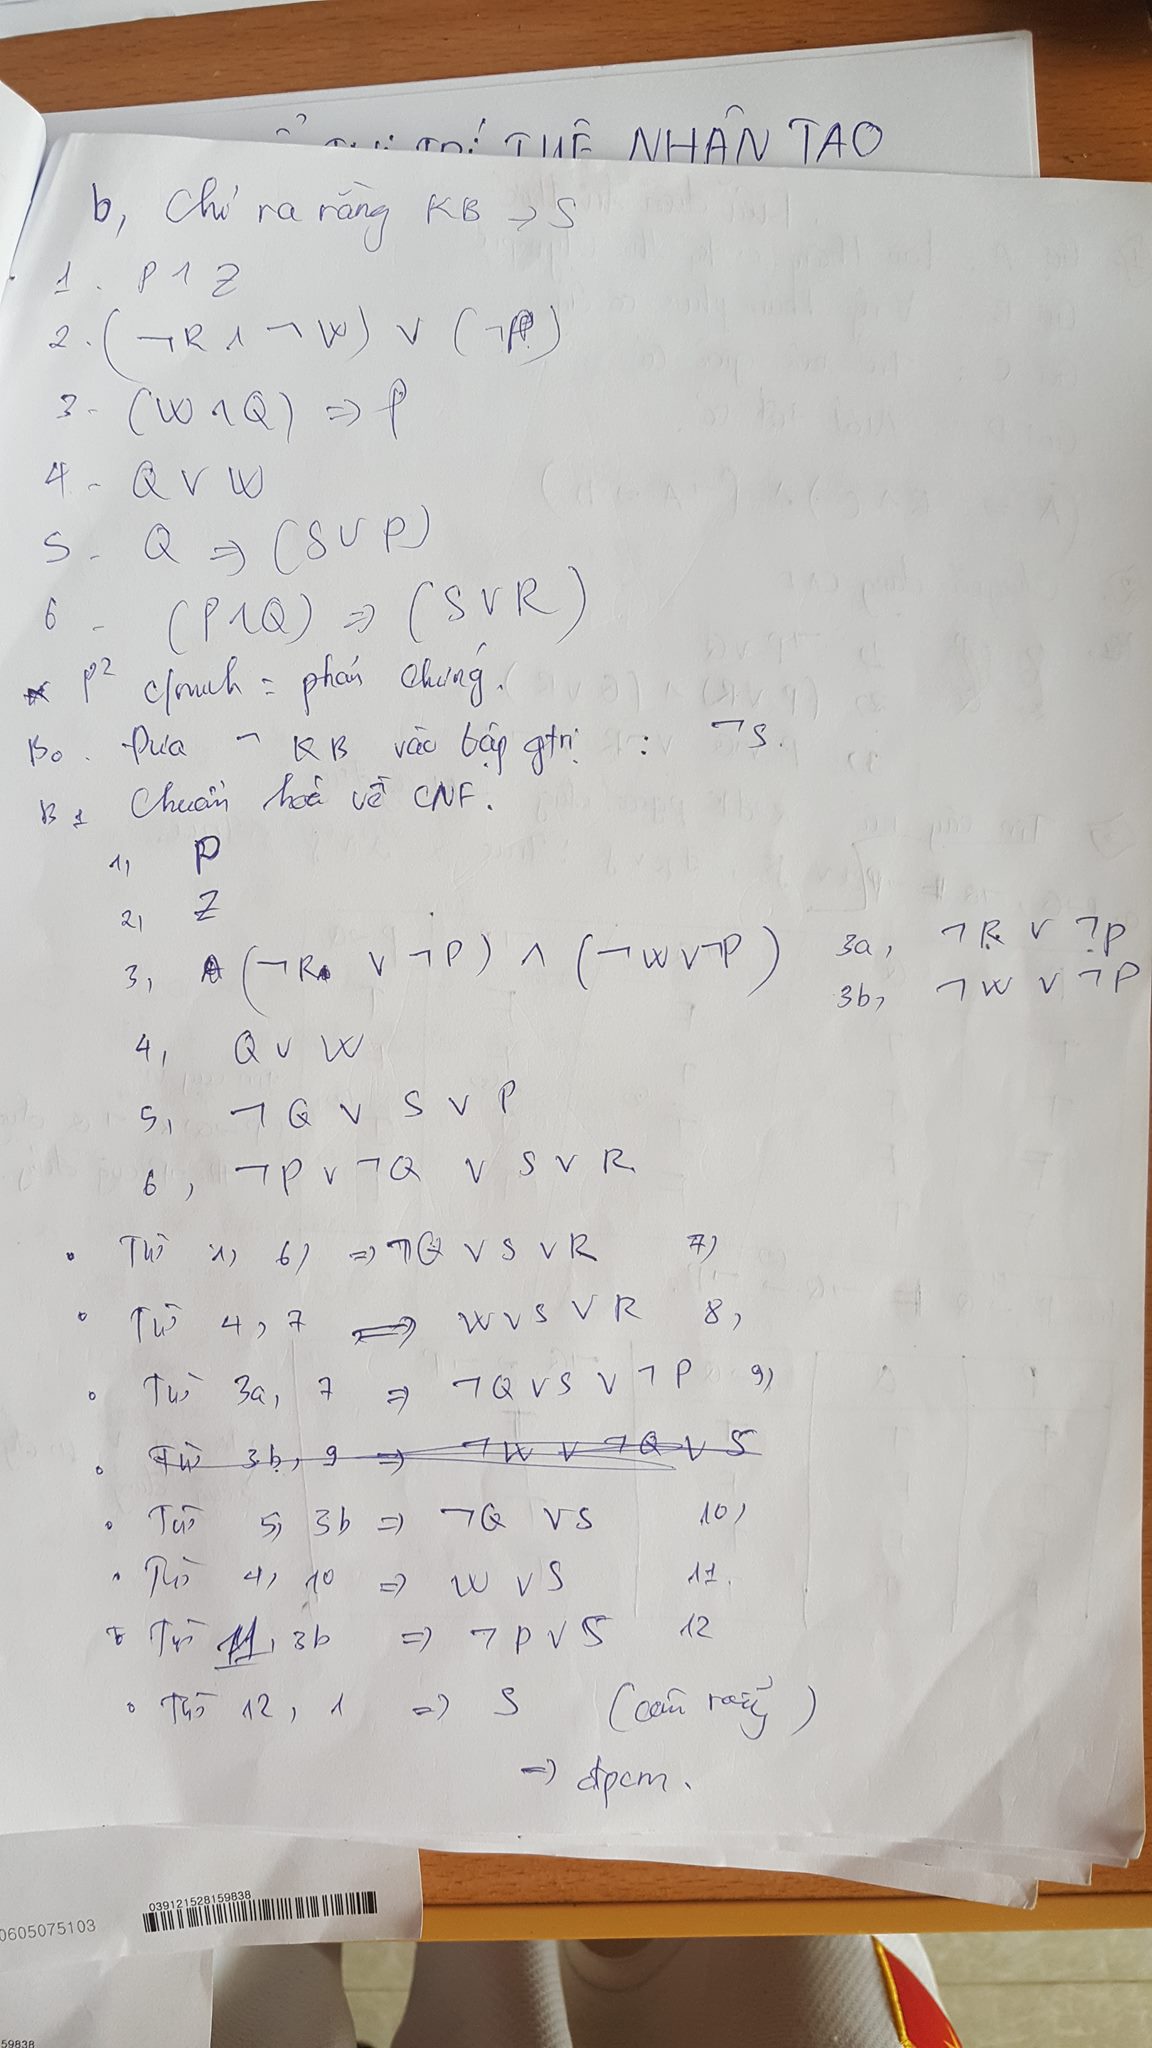 NHÂN TẠO
b, Chỉ ra rằng KB => S
1. P ∧ Z
2. (¬R ∧ ¬W) ∨ (¬P)
3. (W ∧ Q) => P
4. Q ∨ W
5. Q => (S ∨ P)
6. (P ∧ Q) => (S ∨ R)
* P² c/minh = phản chứng.
B0. Đưa ¬ KB vào tập gtrị : ¬S.
B1 Chuẩn hoá về CNF.
1, P
2, Z
3, (¬R ∨ ¬P) ∧ (¬W ∨ ¬P) 3a, ¬R ∨ ¬P
3b, ¬W ∨ ¬P
4, Q ∨ W
5, ¬Q ∨ S ∨ P
6, ¬P ∨ ¬Q ∨ S ∨ R
• Từ 1, 6, => ¬Q ∨ S ∨ R 7,
• Từ 4, 7 => W ∨ S ∨ R 8,
• Từ 3a, 7 => ¬Q ∨ S ∨ ¬P 9,
• Từ 3b, 9 => ¬W ∨ ¬Q ∨ S
• Từ 5, 3b => ¬Q ∨ S 10,
• Từ 4, 10 => W ∨ S 11.
• Từ 11, 3b => ¬P ∨ S 12
• Từ 12, 1 => S (câu rỗng)
=> đpcm.
039121528159838
0605075103
59838